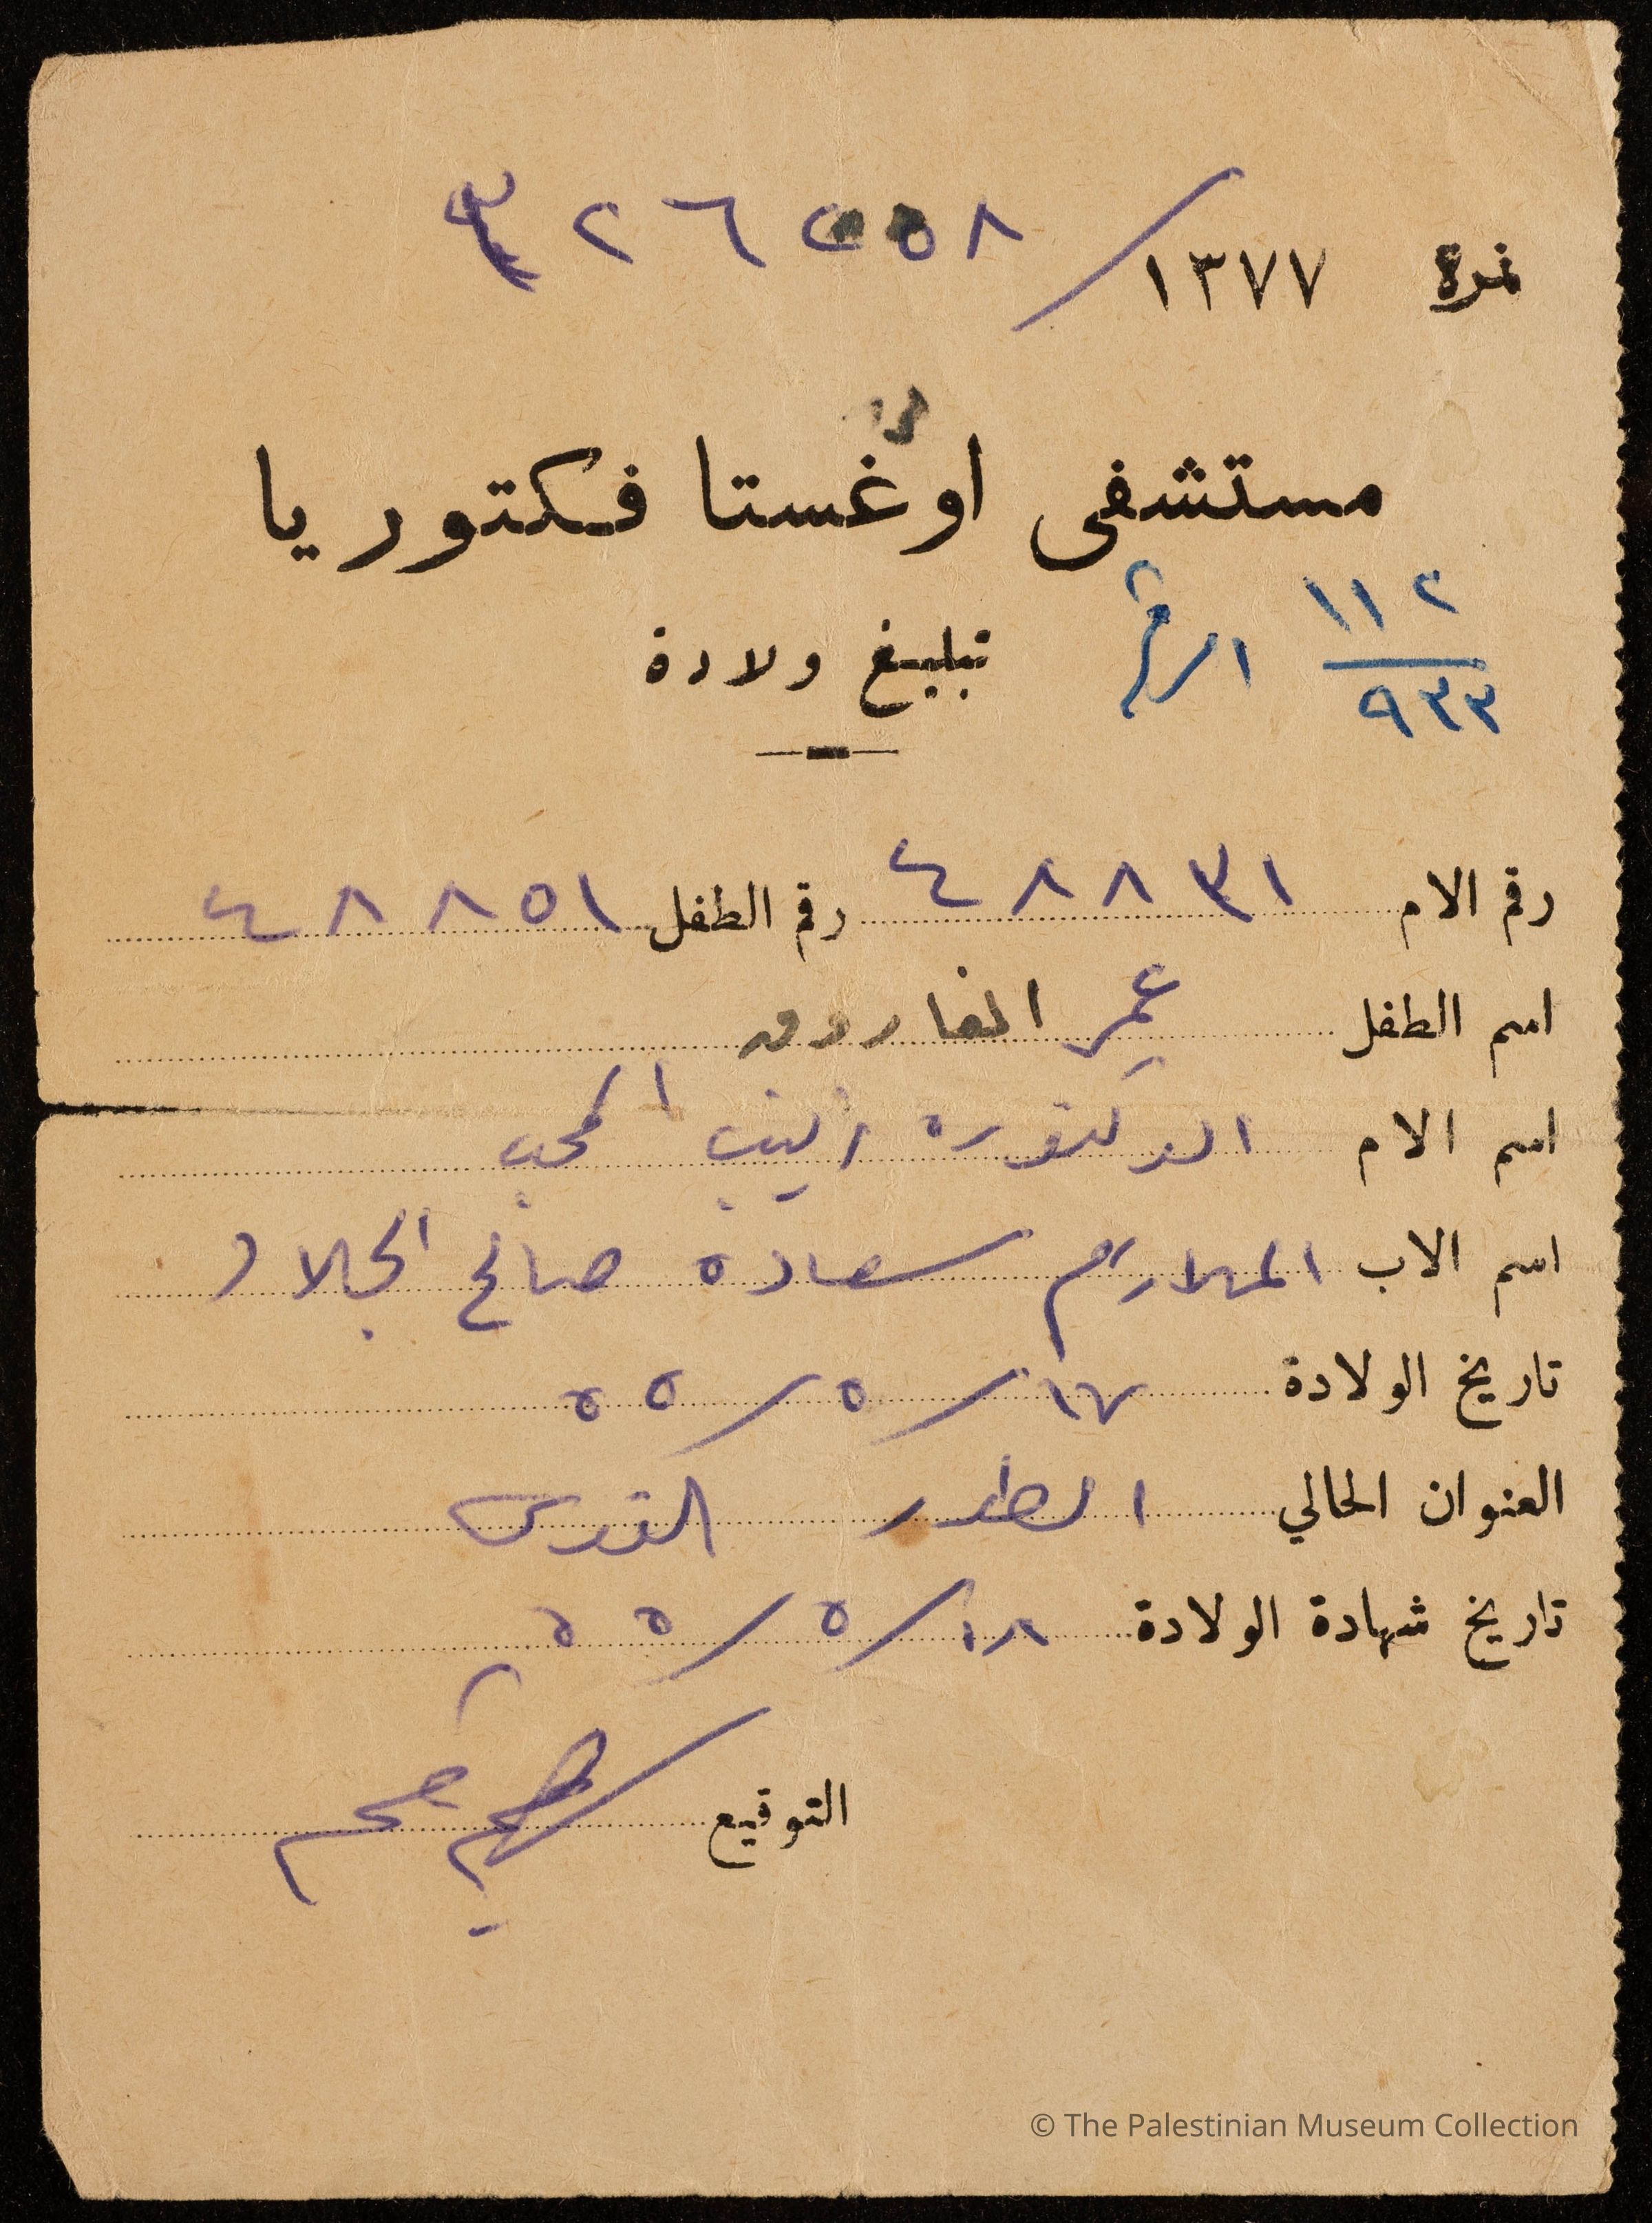 نمرة ١٣٧٧ /
مستشفى اوغستا فكتوريا
١١٢
الرقم
٩٣٣
تبليغ ولادة
رقم الام ٤٨٨٣١ رقم الطفل ٤٨٨٥١
اسم الطفل عمر الفاروق
اسم الام الدكتوره زينب المحب
اسم الاب الملازم سعاده صالح الجلاد
تاريخ الولادة ١٧/٥/٥٥
العنوان الحالي الطور القدس
تاريخ شهادة الولادة ١٨/٥/٥٥
التوقيع
© The Palestinian Museum Collection